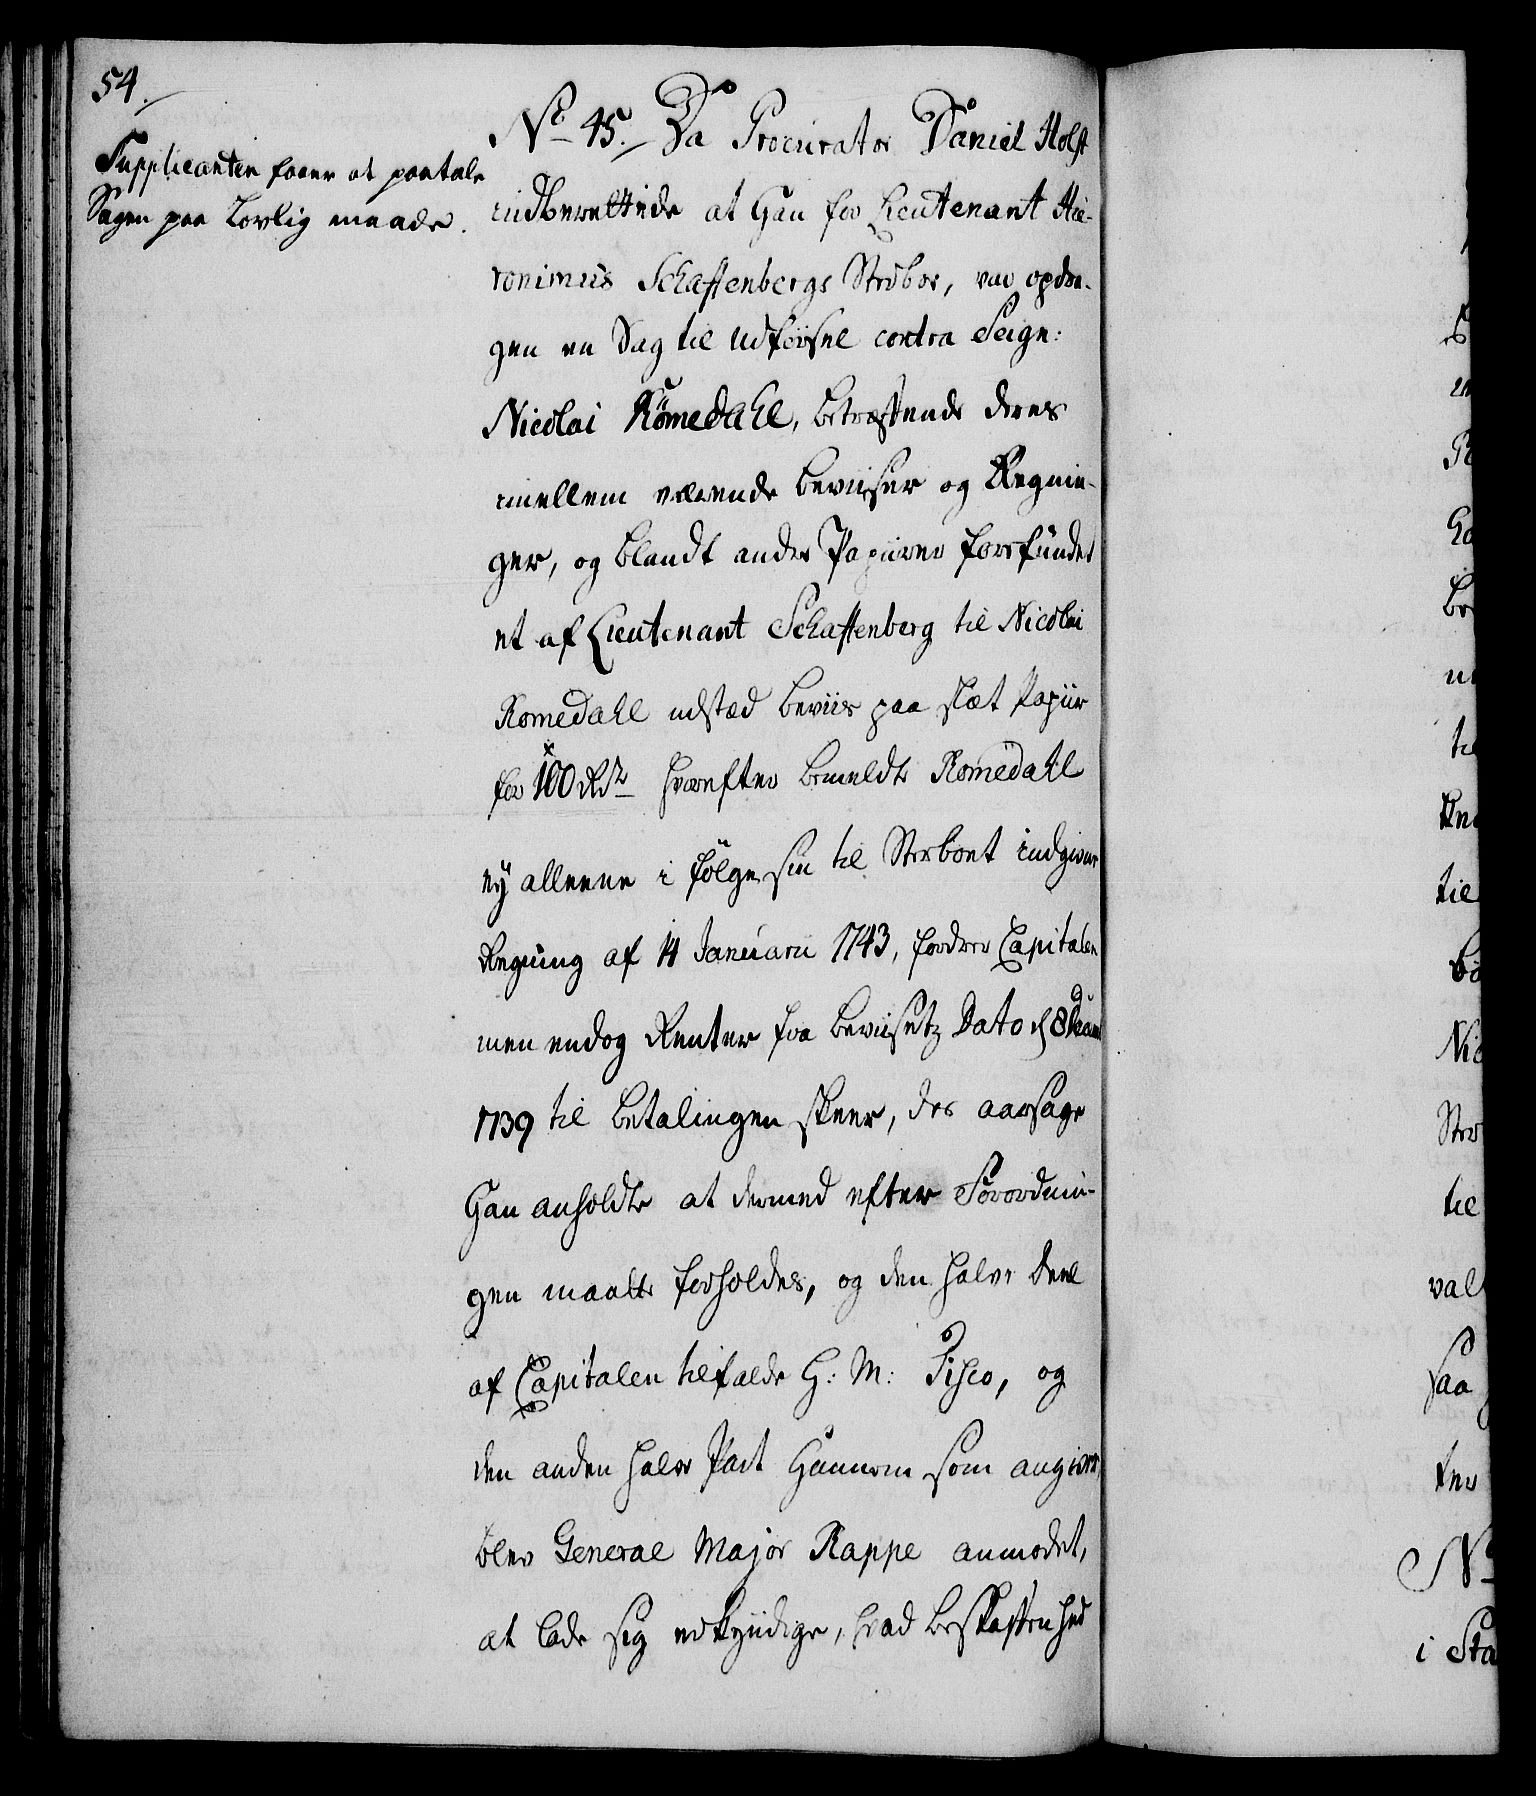 54.
Supplicanten faaer at paatale
Sagen paa Lovlig maade.
No 45. Da Procurator Daniel Holst
indberettede at Han for Lieutenant Hie-
ronimus Schaftenbergs Stedboe, var opdra-
gen en Sag til Udførsel contra Seign:
Nicolai Römedahl, betræffende deres
imellem værende beviiser og Regnin-
ger, og blandt andre Papirer forefundet
et af Lieutenant Schaftenberg til Nicolai
Romedahl udstæd beviis paa slæt Papiir
for 100 Rdr hvorefter bemeldte Romedahl
ey alleene i følge sin til Sterboet indgivne
Regning af 14 Januarii 1743, fordrer Capitalen
men endog Renter fra beviisetz Dato d 8
1739 til betalingen skeer, des aarsage
Han anholdte at dermed efter Forordnin-
gen maatte forholdes, og den halve Deel
af Capitalen tilfalde H: M: Fisco, og
den anden halve Part Hannem som angiver,
blev General Major Rappe anmodet,
at lade sig erkyndige, hvad beskaffenhed